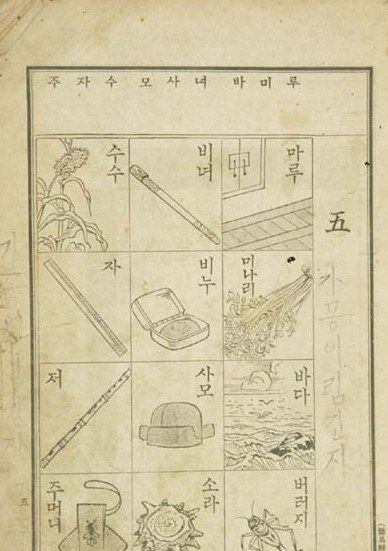 루 미 바 녀 사 모 수 자 주
五
마루
미나리
바다
버러지
비녀
비누
사모
소라
수수
자
저
주머니
五